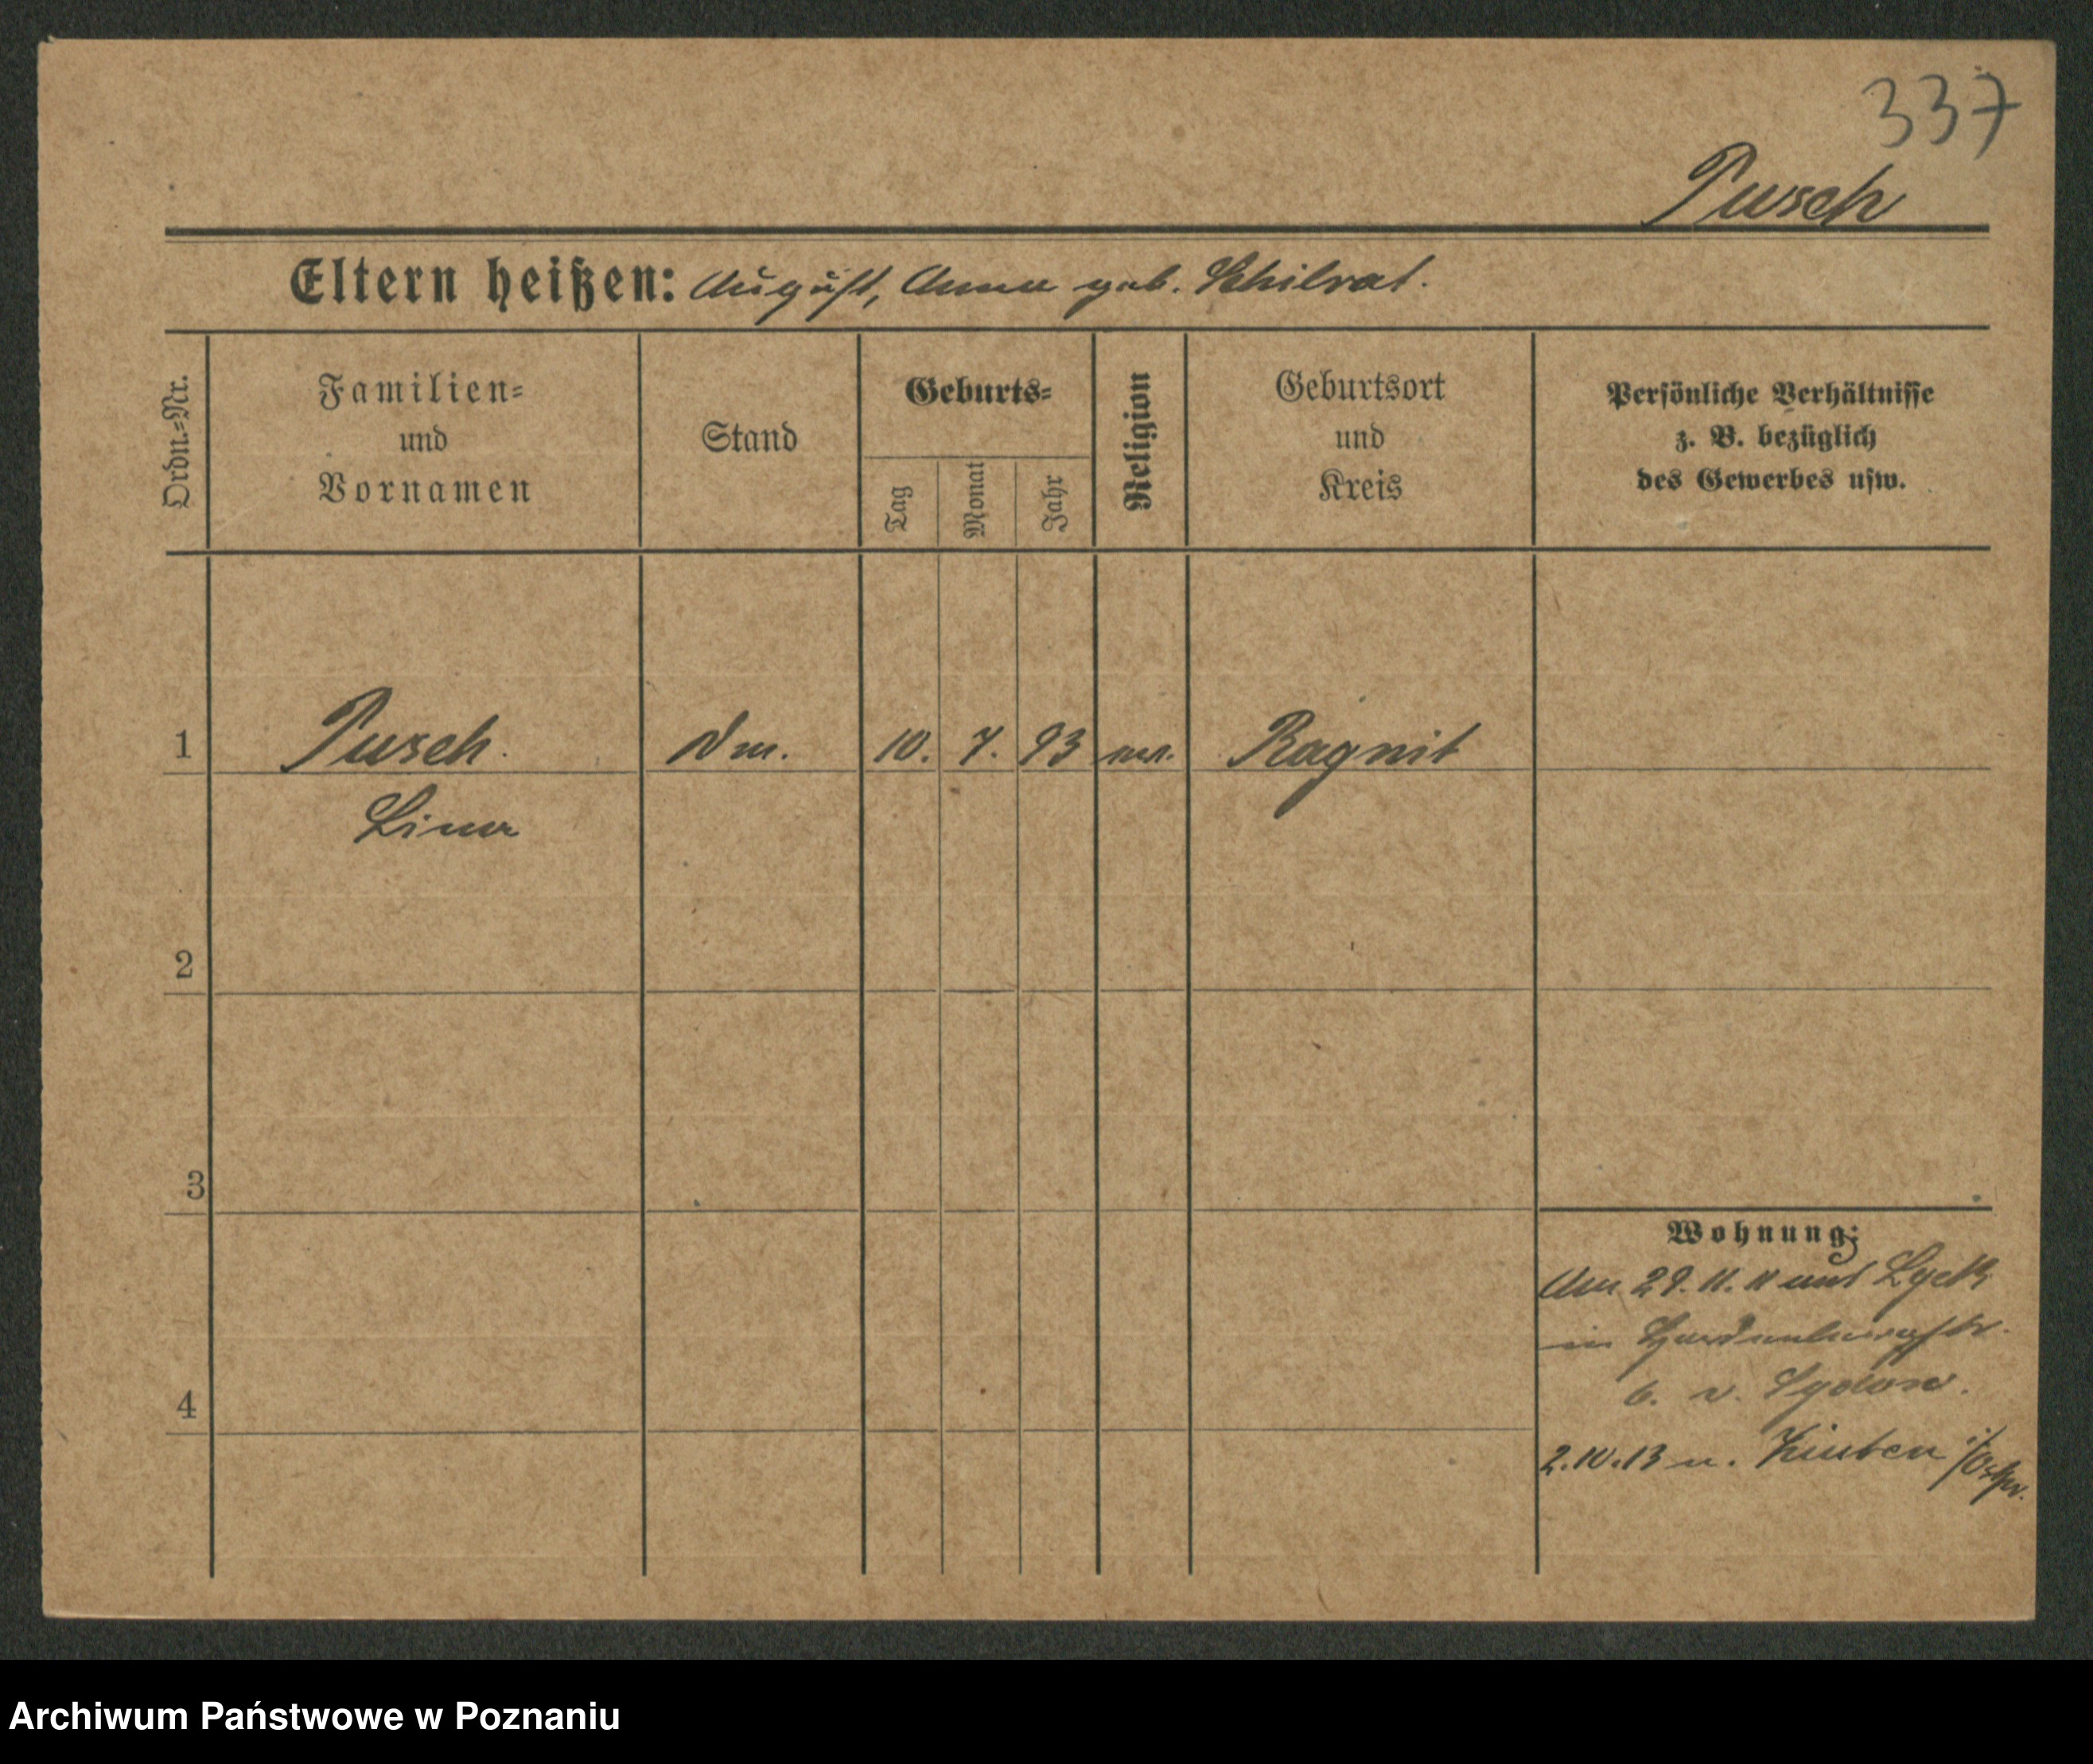 337
Pusch
Eltern heißen: August, Anna geb. Schilrat.
Ordn.-Nr.
Familien-
und
Vornamen
Stand
Geburts-
Tag
Monat
Jahr
Religion
Geburtsort
und
Kreis
Persönliche Verhältnisse
z. B. bezüglich
des Gewerbes usw.
1 Pusch. Dm. 10. 7. 93 Ragnit
Lina
2
3
4
Wohnung:
Am 29. 11. 11 aus Lyck
in Hardenbergstr.
6. v. Sydow.
2.10.13 n. i/Ostpr.
Archiwum Państwowe w Poznaniu